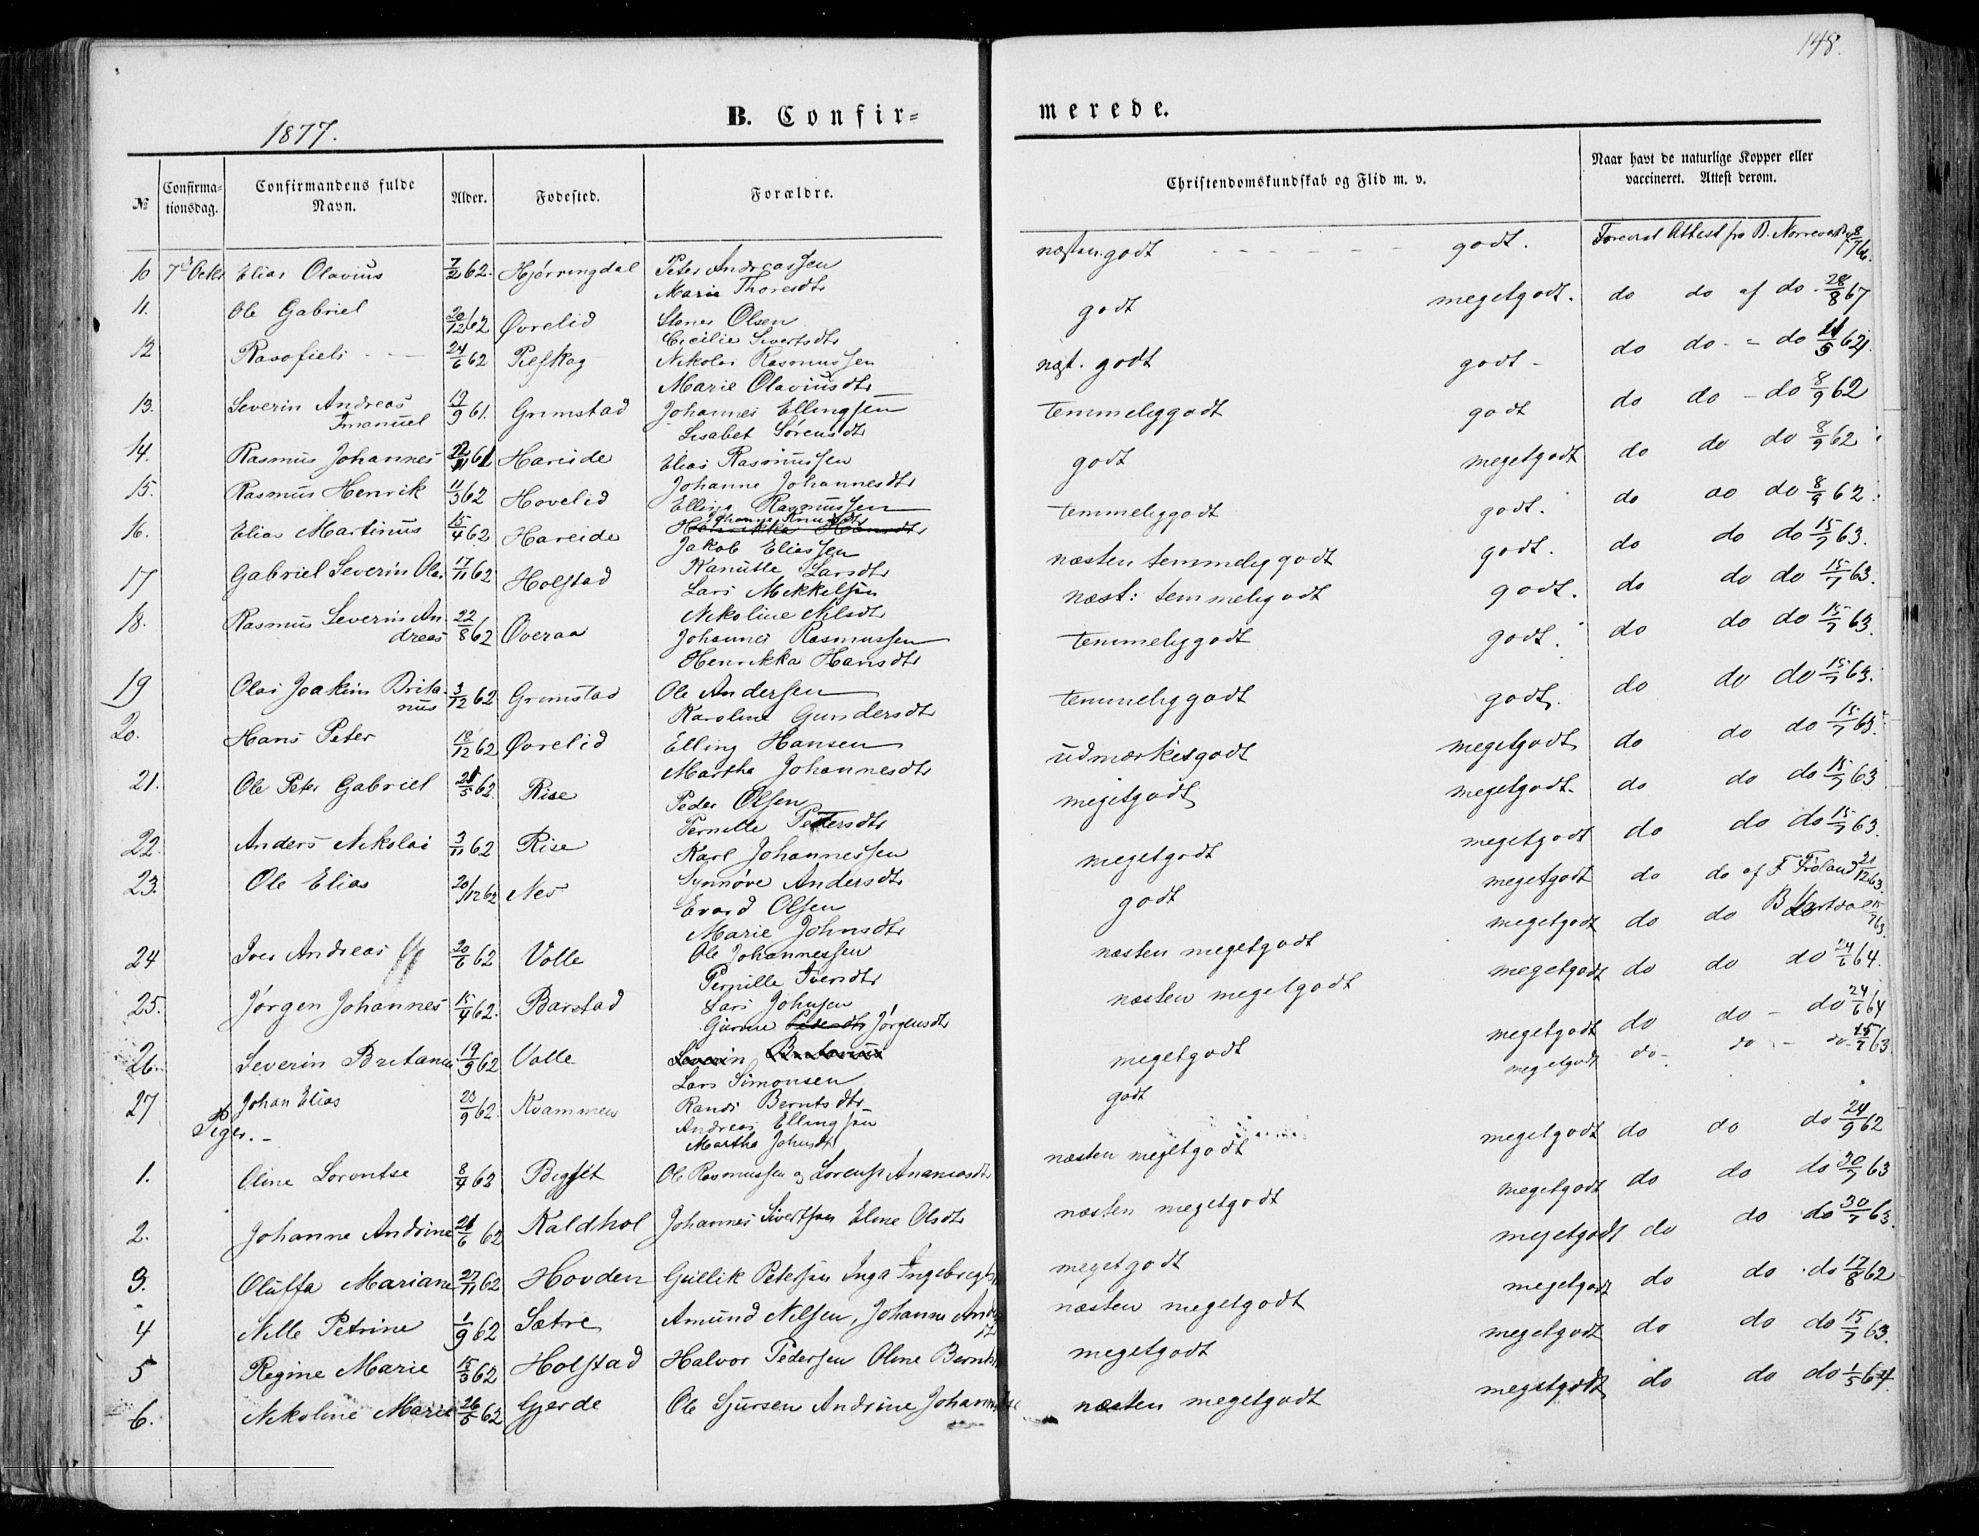 148.
1877.
B. Confir= merede.
№ Confirma- tionsdag. Confirmandens fulde Navn. Alder. Fødested. Forældre. Christendomskundskab og Flid m. v. Naar havt de naturlige Kopper eller vaccineret. Attest derom.
10 7de Octr Elias Olavius 7/2 62. Hjørringdal Peter Andreassen næsten godt godt. Forevist Attest fra
Marie Thoresdtr
11. Ole Gabriel 20/12 62 Øvrelid Stener Olsen godt megetgodt. do do af do 28/8 67
Cecilie Sivertsdtr
12 24/6 62 Nikolai Rasmussen næst. godt godt - do do - do
Marie Olaviusdtr
13. Severin Andreas Imanuel 19/9 61. Grimstad Johannes Ellingsen temmeliggodt godt do do - do 8/9 62
Lisabet Sørensdtr
14. Rasmus Johannes 61 Hareide Elias Rasmussen godt megetgodt do do do 8/9 62
Johanne Johannesdtr
15. Rasmus Henrik 11/3 62 Hovelid Elling Rasmussen temmeliggodt godt. do do do 8/9 62
Knudsdtr
16. Elias Martinus 15/4 62 Hareide Jakob Eliassen næsten temmelig godt godt. do do do 15/7 63.
Larsdtr
17 Gabriel Severin Olai 17/11 62 Holstad Lars Mikkelsen næst: temmeligodt godt. do do do 15/7 63.
Nikoline Nilsdtr
18. Rasmus Severin Andreas 22/8 62 Overaa Johannes Rasmussen temmeliggodt godt. do do do 15/7 63.
Henrikka Hansdtr
19 Olai Joakim Britanus 3/12 62 Grimstad Ole Andersen temmeliggodt godt. do do do 15/7 63.
Karoline Gundersdtr
20. Hans Peter 18/12 62 Øvrelid Elling Hansen udmærketgodt megetgodt do do do 15/7 63.
Martha Johannesdtr
21. Ole Peter Gabriel 62. Rise Peder Olsen megetgodt megetgodt. do do do 15/7 63
Pernille Pedersdtr
22. Anders Nikolai 3/11 62 Rise Karl Johannessen megetgodt megetgodt do do do 15/7 63.
Synnøve Andersdtr
23. Ole Elias 20/12 62 Nes Evard Olsen godt megetgodt do do af F Frøland 21/12 63.
Marie Johnsdtr
24 Iver Andreas 20/6 62 Volle Ole Johannessen næsten megetgodt megetgodt do do
Pernille Iversdtr
25. Jørgen Johannes 15/4 62. Barstad Lars Johnsen næsten megetgodt megetgodt do do do 24/6 64.
Jørgensdtr
26. Severin Britanus 19/9 62 Volle Lars Simonsen megetgodt megetgodt do do - do 24/6 64
Randi Berntsdtr
27 Johan Elias 23/9 62. Kvammen Andreas Ellingsen godt megetgodt do- do - do 15/7 63.
Martha Johnsdtr
Piger. -
1. Oline Lorentse 8/4 62 Ole Rasmussen næsten megetgodt megetgodt do do do 24/9 62
2. Johanne Andrine 62 Kaldhol Johannes Sivertsen Eline Olsdtr næsten megetgodt megetgodt do do do 30/7 63
3. Oluffa Mariane 27/11 62 Hovden Gullik Petersen Inga megetgodt megetgodt do do do 30/7 63.
4 Nille Petrine 1/9 62 Sætre Amund Nilsen, Johanne næsten megetgodt megetgodt do do do 17/8 62
5 Regine Marie 15/5 62 Holstad Halvor Pedersen Oline megetgodt megetgodt do do do 15/7 63.
6. Nikoline Marie 26/5 62 Gjerde Ole Sjursen Andrine næsten megetgodt megetgodt do do do 1/5 64.